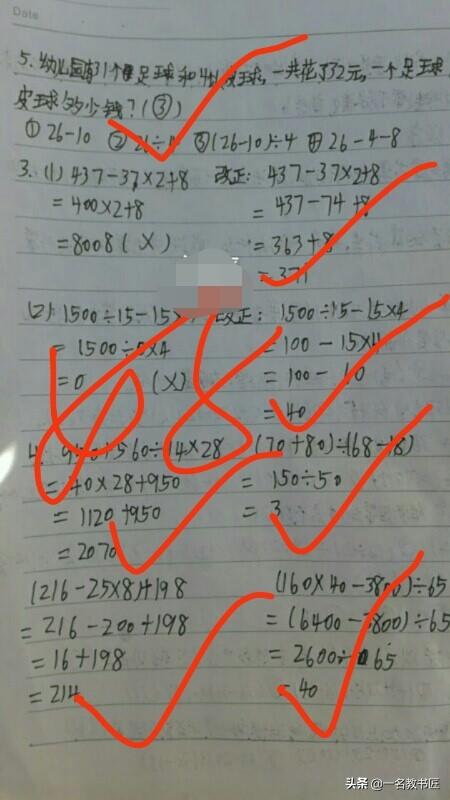 Date
5. 幼儿园有31个足球和4个皮球,一共花了32元,一个足球
皮球多少钱?(③)
① 26-10 ② 26÷4 ③(26-10)÷4 ④ 26-4-8
3. (1) 437-37×2+8 改正: 437-37×2+8
=400×2+8 =437-74+8
=8008 (×) =363+8
=371
(2) 1500÷15-15× 改正: 1500÷15-15×4
=1500÷0×4 =100-15×4
=0 (×) =100-60
=40
4. 950+560÷14×28 (70+80)÷(68-18)
=40×28+950 =150÷50
=1120+950 =3
=2070
(216-25×8)+198 (160×40-3800)÷65
=216-200+198 =(6400-3800)÷65
=16+198 =2600÷65
=214 =40
头条 @一名教书匠